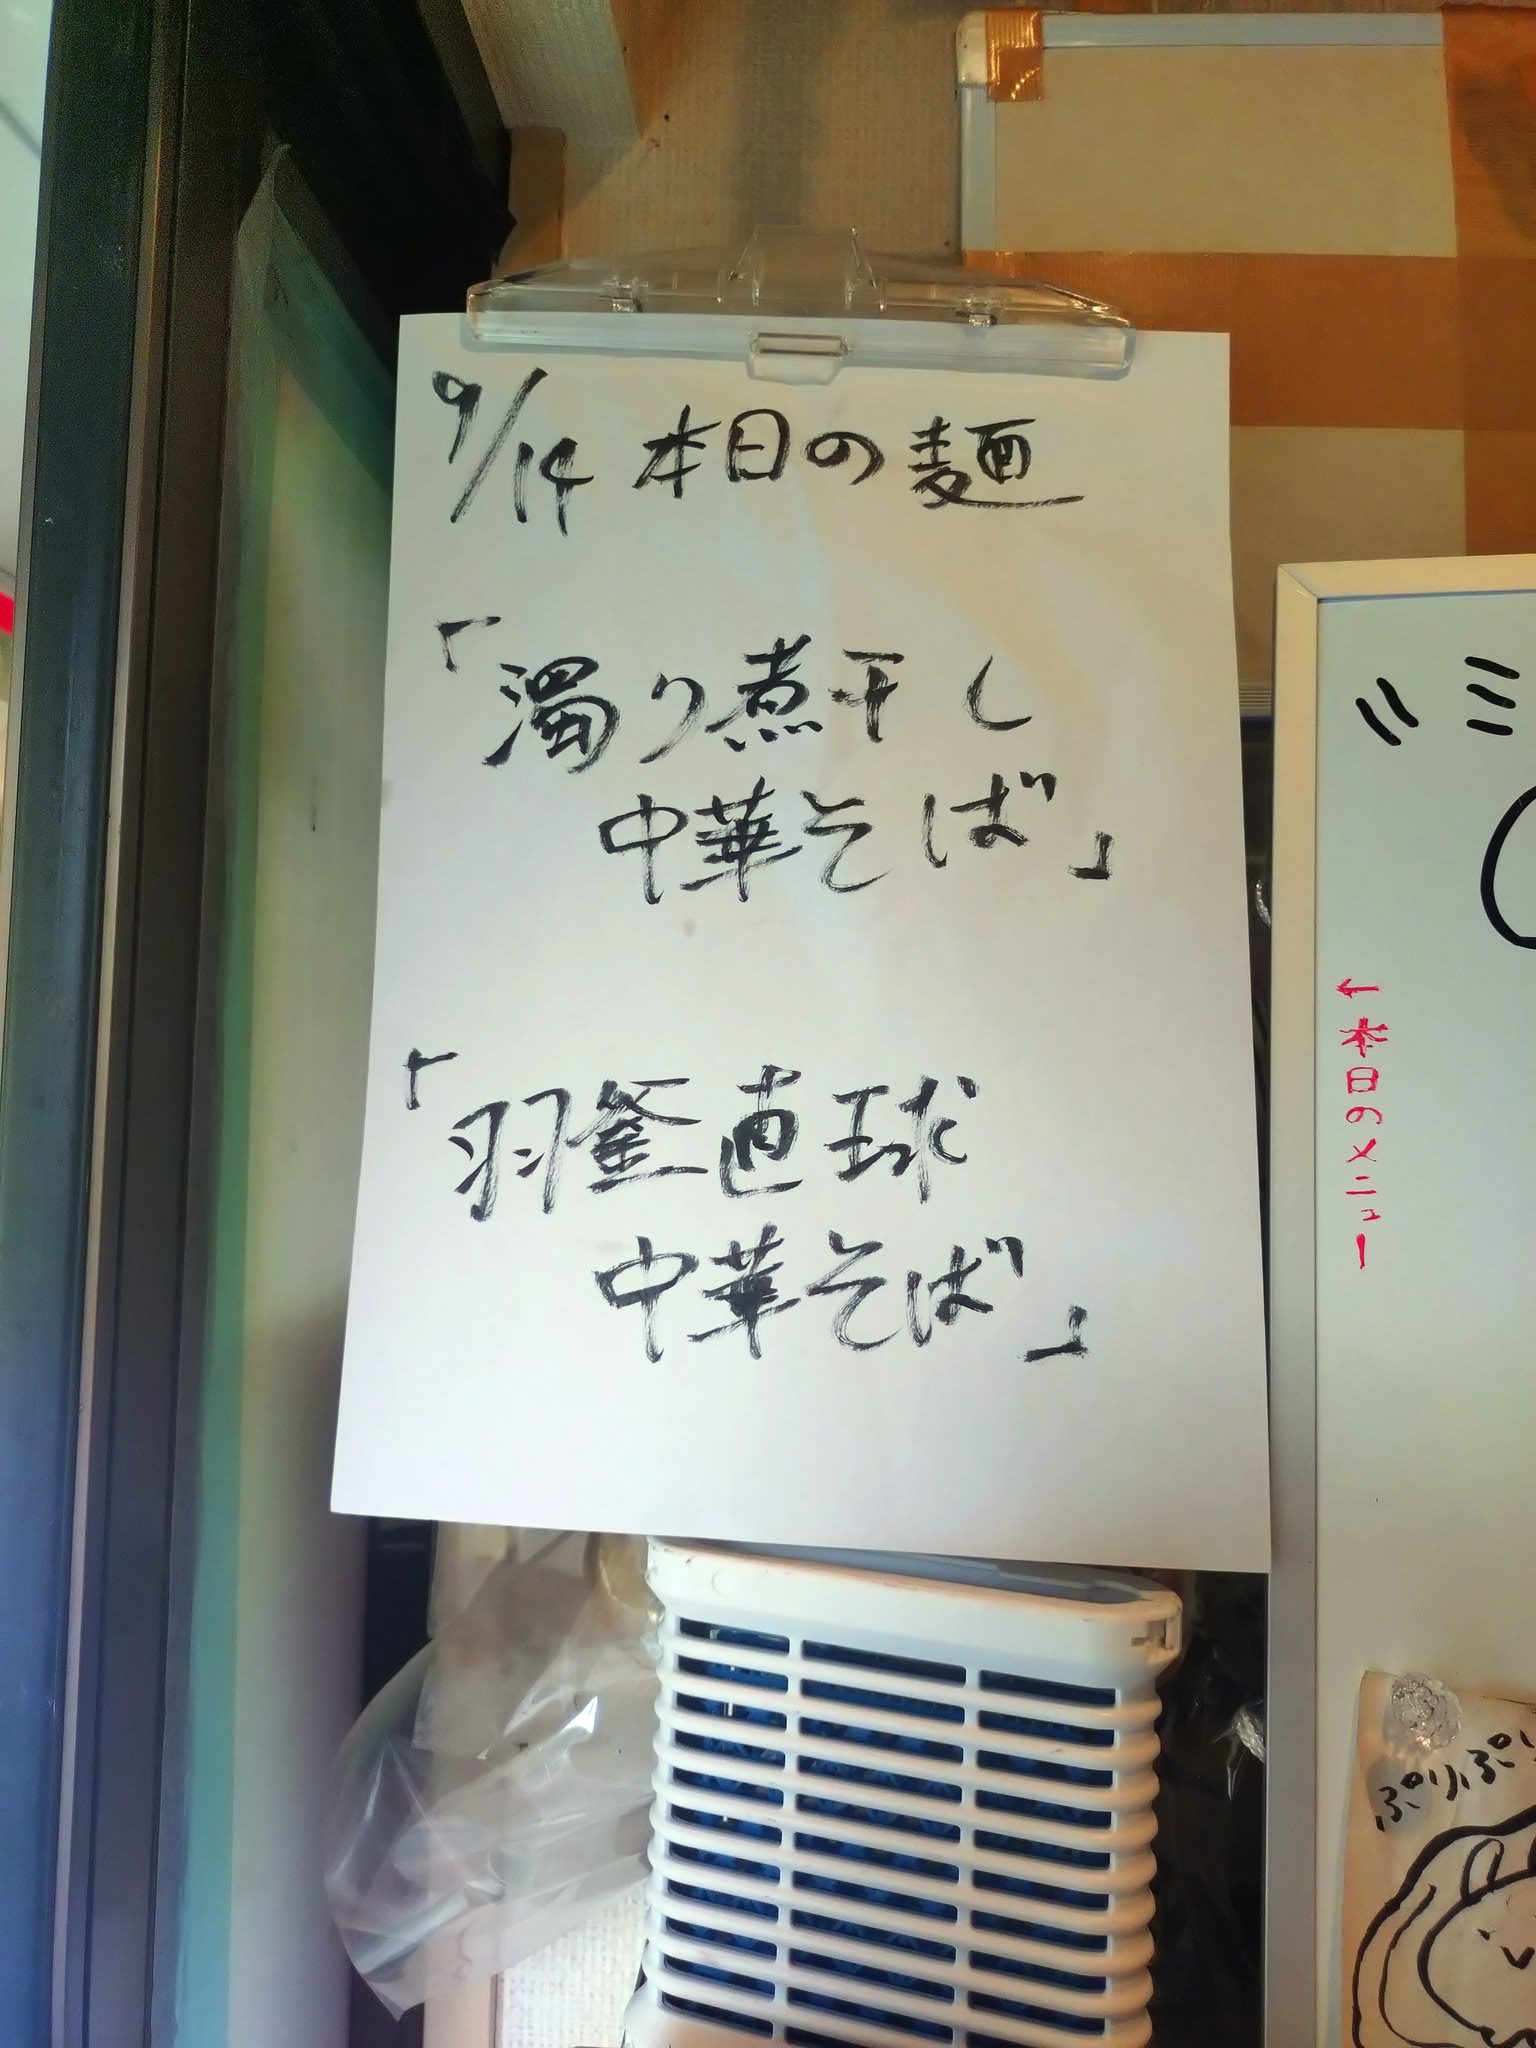 9/14 本日の麺
「濁り煮干し
中華そば」
「羽釜直球
中華そば」
↑本日のメニュー
ぷりぷり